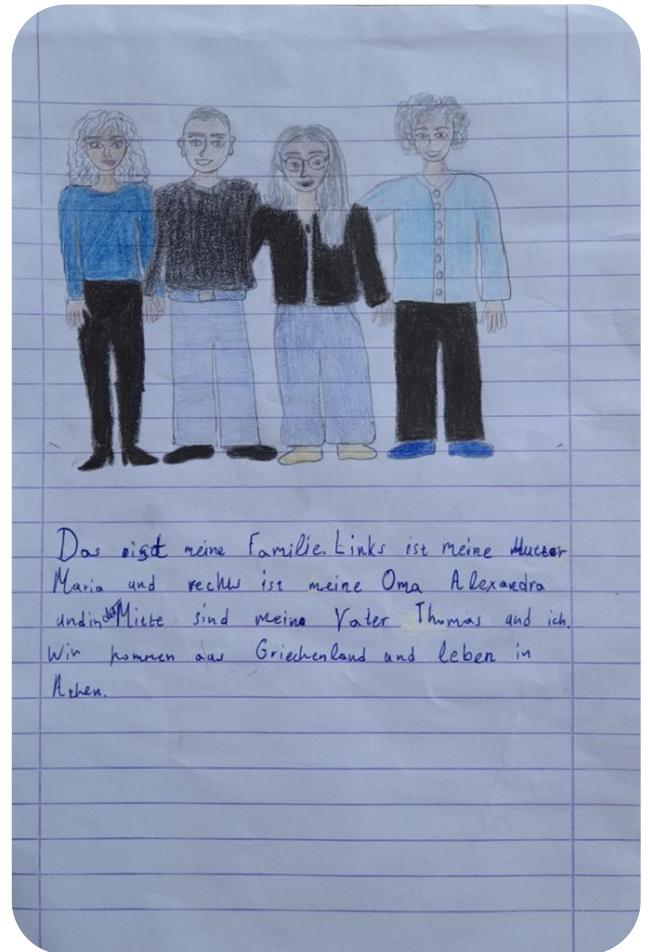 Das ist meine Familie. Links ist meine Mutter
Maria und rechts ist meine Oma Alexandra
und in der Mitte sind meine Vater Thomas und ich.
Wir kommen aus Griechenland und leben in
Athen.